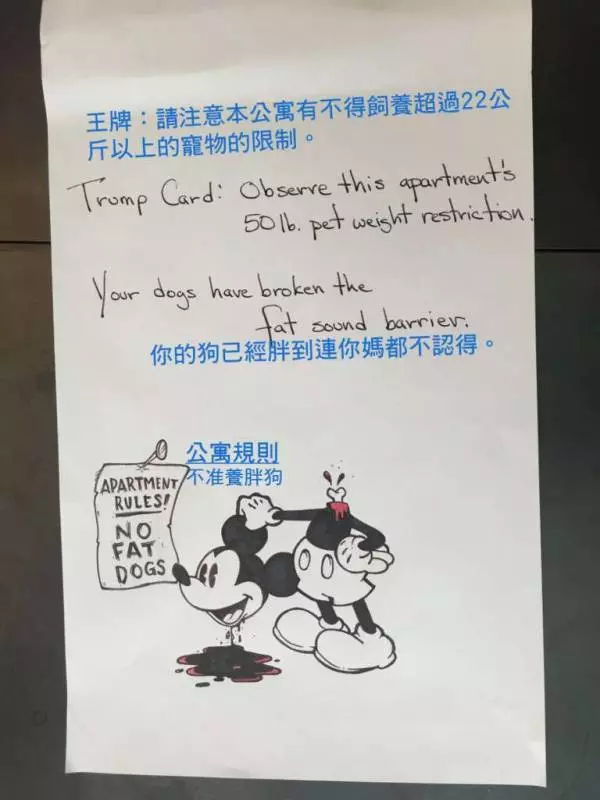 王牌：請注意本公寓有不得飼養超過22公
斤以上的寵物的限制。
Trump Card: Observe this apartment's
50 lb. pet weight restriction.
Your dogs have broken the
fat sound barrier.
你的狗已經胖到連你媽都不認得。
公寓規則
不准養胖狗
APARTMENT
RULES!
NO
FAT
DOGS